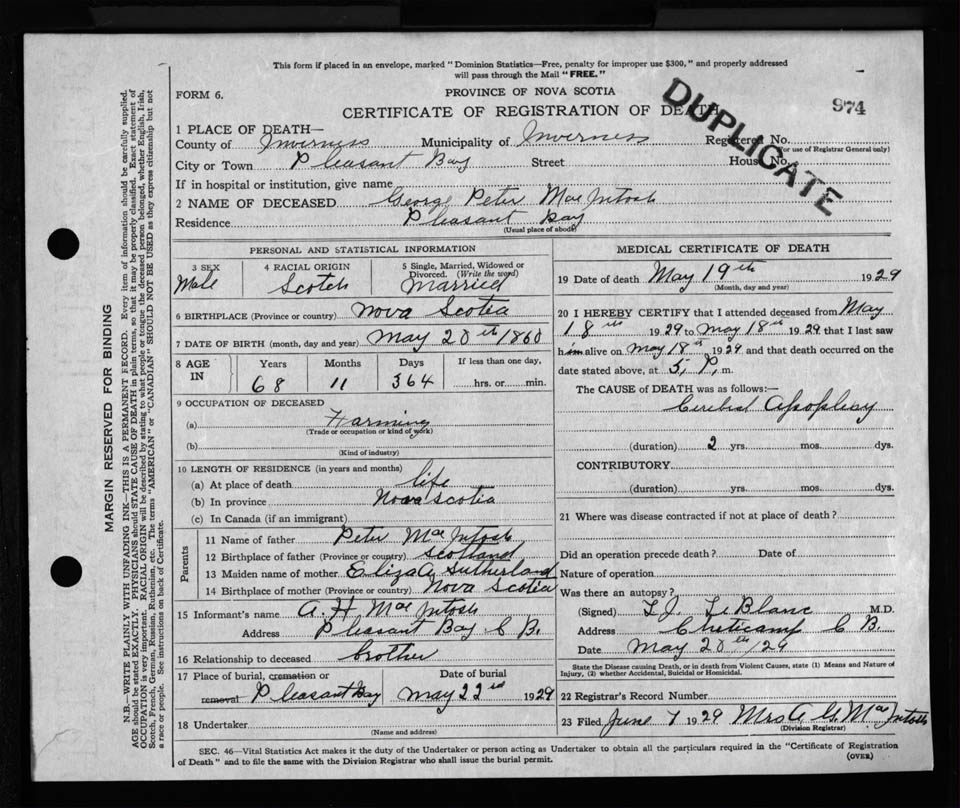 This form if placed in an envelope, marked "Dominion Statistics—Free, penalty for improper use $300," and properly addressed
will pass through the Mail "FREE."
FORM 6.
PROVINCE OF NOVA SCOTIA
CERTIFICATE OF REGISTRATION OF DEATH
DUPLICATE
974
1 PLACE OF DEATH—
County of Inverness Municipality of Inverness Registered No.
(For use of Registrar General only)
City or Town Pleasant Bay Street House No.
If in hospital or institution, give name
2 NAME OF DECEASED George Peter MacIntosh
Residence Pleasant Bay
(Usual place of abode)
PERSONAL AND STATISTICAL INFORMATION
3 SEX Male
4 RACIAL ORIGIN Scotch
5 Single, Married, Widowed or Divorced. (Write the word) Married
6 BIRTHPLACE (Province or country) Nova Scotia
7 DATE OF BIRTH (month, day and year) May 20th 1860
8 AGE IN Years 68 Months 11 Days 364
If less than one day, hrs. or min.
9 OCCUPATION OF DECEASED
(a) Farming
(Trade or occupation or kind of work)
(b)
(Kind of industry)
10 LENGTH OF RESIDENCE (in years and months)
(a) At place of death life
(b) In province Nova Scotia
(c) In Canada (if an immigrant)
Parents
11 Name of father Peter MacIntosh
12 Birthplace of father (Province or country) Scotland
13 Maiden name of mother Eliza A. Sutherland
14 Birthplace of mother (Province or country) Nova Scotia
15 Informant's name A. H MacIntosh
Address Pleasant Bay C B.
16 Relationship to deceased brother
17 Place of burial, cremation or removal Pleasant Bay
Date of burial May 22nd 1929
18 Undertaker
(Name and address)
MEDICAL CERTIFICATE OF DEATH
19 Date of death May 19th 1929
(Month, day and year)
20 I HEREBY CERTIFY that I attended deceased from May
18th 1929 to May 18th 1929 that I last saw
him alive on May 18th 1929 and that death occurred on the
date stated above, at 5. P. m.
The CAUSE of DEATH was as follows:—
Cerebral Apoplexy
(duration) 2 yrs. mos. dys.
CONTRIBUTORY
(duration) yrs. mos. dys.
21 Where was disease contracted if not at place of death?
Did an operation precede death? Date of
Nature of operation
Was there an autopsy?
(Signed) L. J. LeBlanc M.D.
Address Cheticamp C B.
Date May 20th/29
State the Disease causing Death, or in death from Violent Causes, state (1) Means and Nature of
Injury, (2) whether Accidental, Suicidal or Homicidal.
22 Registrar's Record Number
23 Filed June 7 1929 Mrs A. G. MacIntosh
(Division Registrar)
SEC. 46—Vital Statistics Act makes it the duty of the Undertaker or person acting as Undertaker to obtain all the particulars required in the "Certificate of Registration
of Death" and to file the same with the Division Registrar who shall issue the burial permit.
(OVER)
MARGIN RESERVED FOR BINDING
N.B.—WRITE PLAINLY WITH UNFADING INK—THIS IS A PERMANENT RECORD. Every item of information should be carefully supplied.
AGE should be stated EXACTLY. PHYSICIANS should STATE CAUSE OF DEATH in plain terms, so that it may be properly classified. Exact statement of
OCCUPATION is very important. RACIAL ORIGIN will be described by stating to what people or tongue the deceased person belonged, whether English, Irish,
Scotch, French, German, Russian, Ruthenian, etc. The terms "AMERICAN" or "CANADIAN" SHOULD NOT BE USED as they express citizenship but not
a race or people. See instructions on back of Certificate.